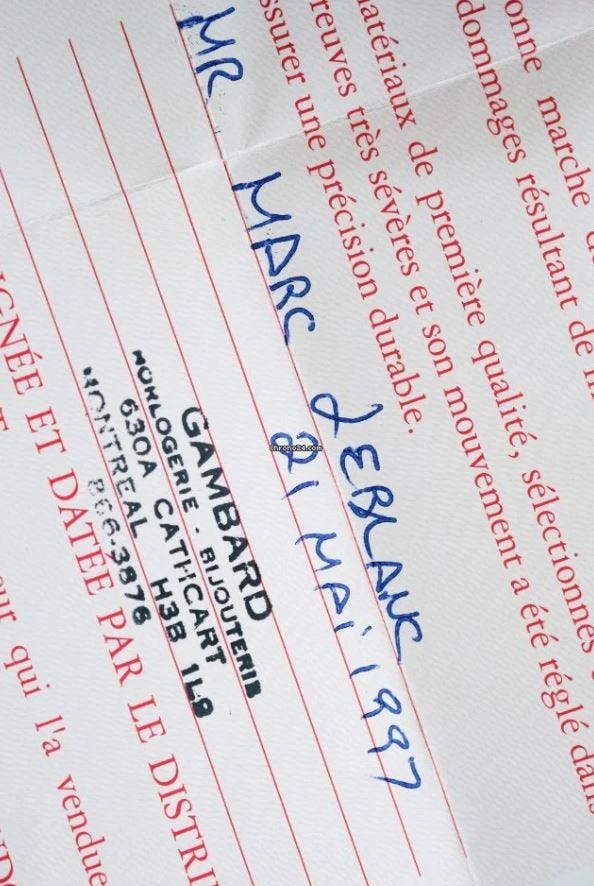 onne marche d
dommages résultant de
atériaux de première qualité, sélectionnés
reuves très sévères et son mouvement a été réglé dans
ssurer une précision durable.
MR. MARC LEBLANC
21 MAI 1997
chrono24.com
GAMBARD
HORLOGERIE - BIJOUTERIE
630A CATHCART
MONTREAL H3B 1L9
866.3876
GNÉE ET DATÉE PAR LE DISTRI
ur qui l'a vendue